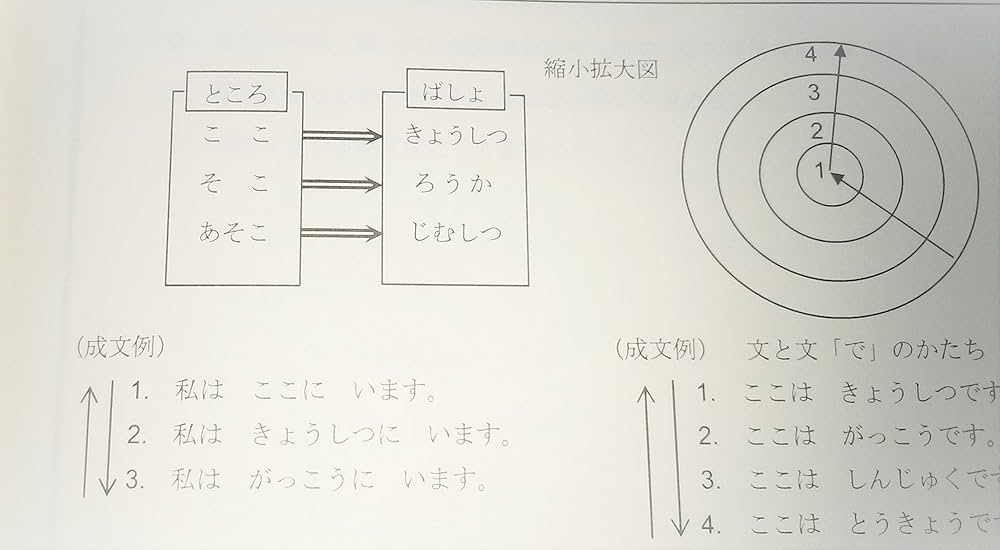 縮小拡大図
ところ
ここ
そこ
あそこ
ばしょ
きょうしつ
ろうか
じむしつ
4
3
2
1
(成文例)
1. 私は ここに います。
2. 私は きょうしつに います。
3. 私は がっこうに います。
(成文例) 文と文「で」のかたち
1. ここは きょうしつです
2. ここは がっこうです。
3. ここは しんじゅくで
4. ここは とうきょうで